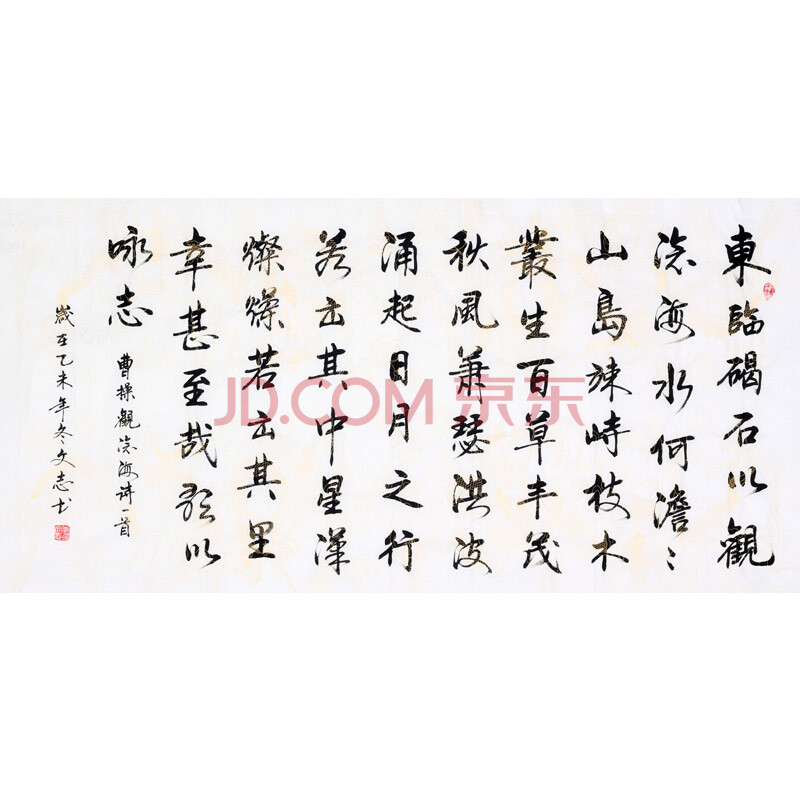 東臨碣石以觀
滄海水何澹々
山島竦峙枝木
叢生百草丰茂
秋風蕭瑟洪波
涌起日月之行
若出其中星漢
燦爛若出其里
幸甚至哉歌以
咏志
曹操觀滄海詩一首
歲在乙未年冬文志书
JD.COM 京东